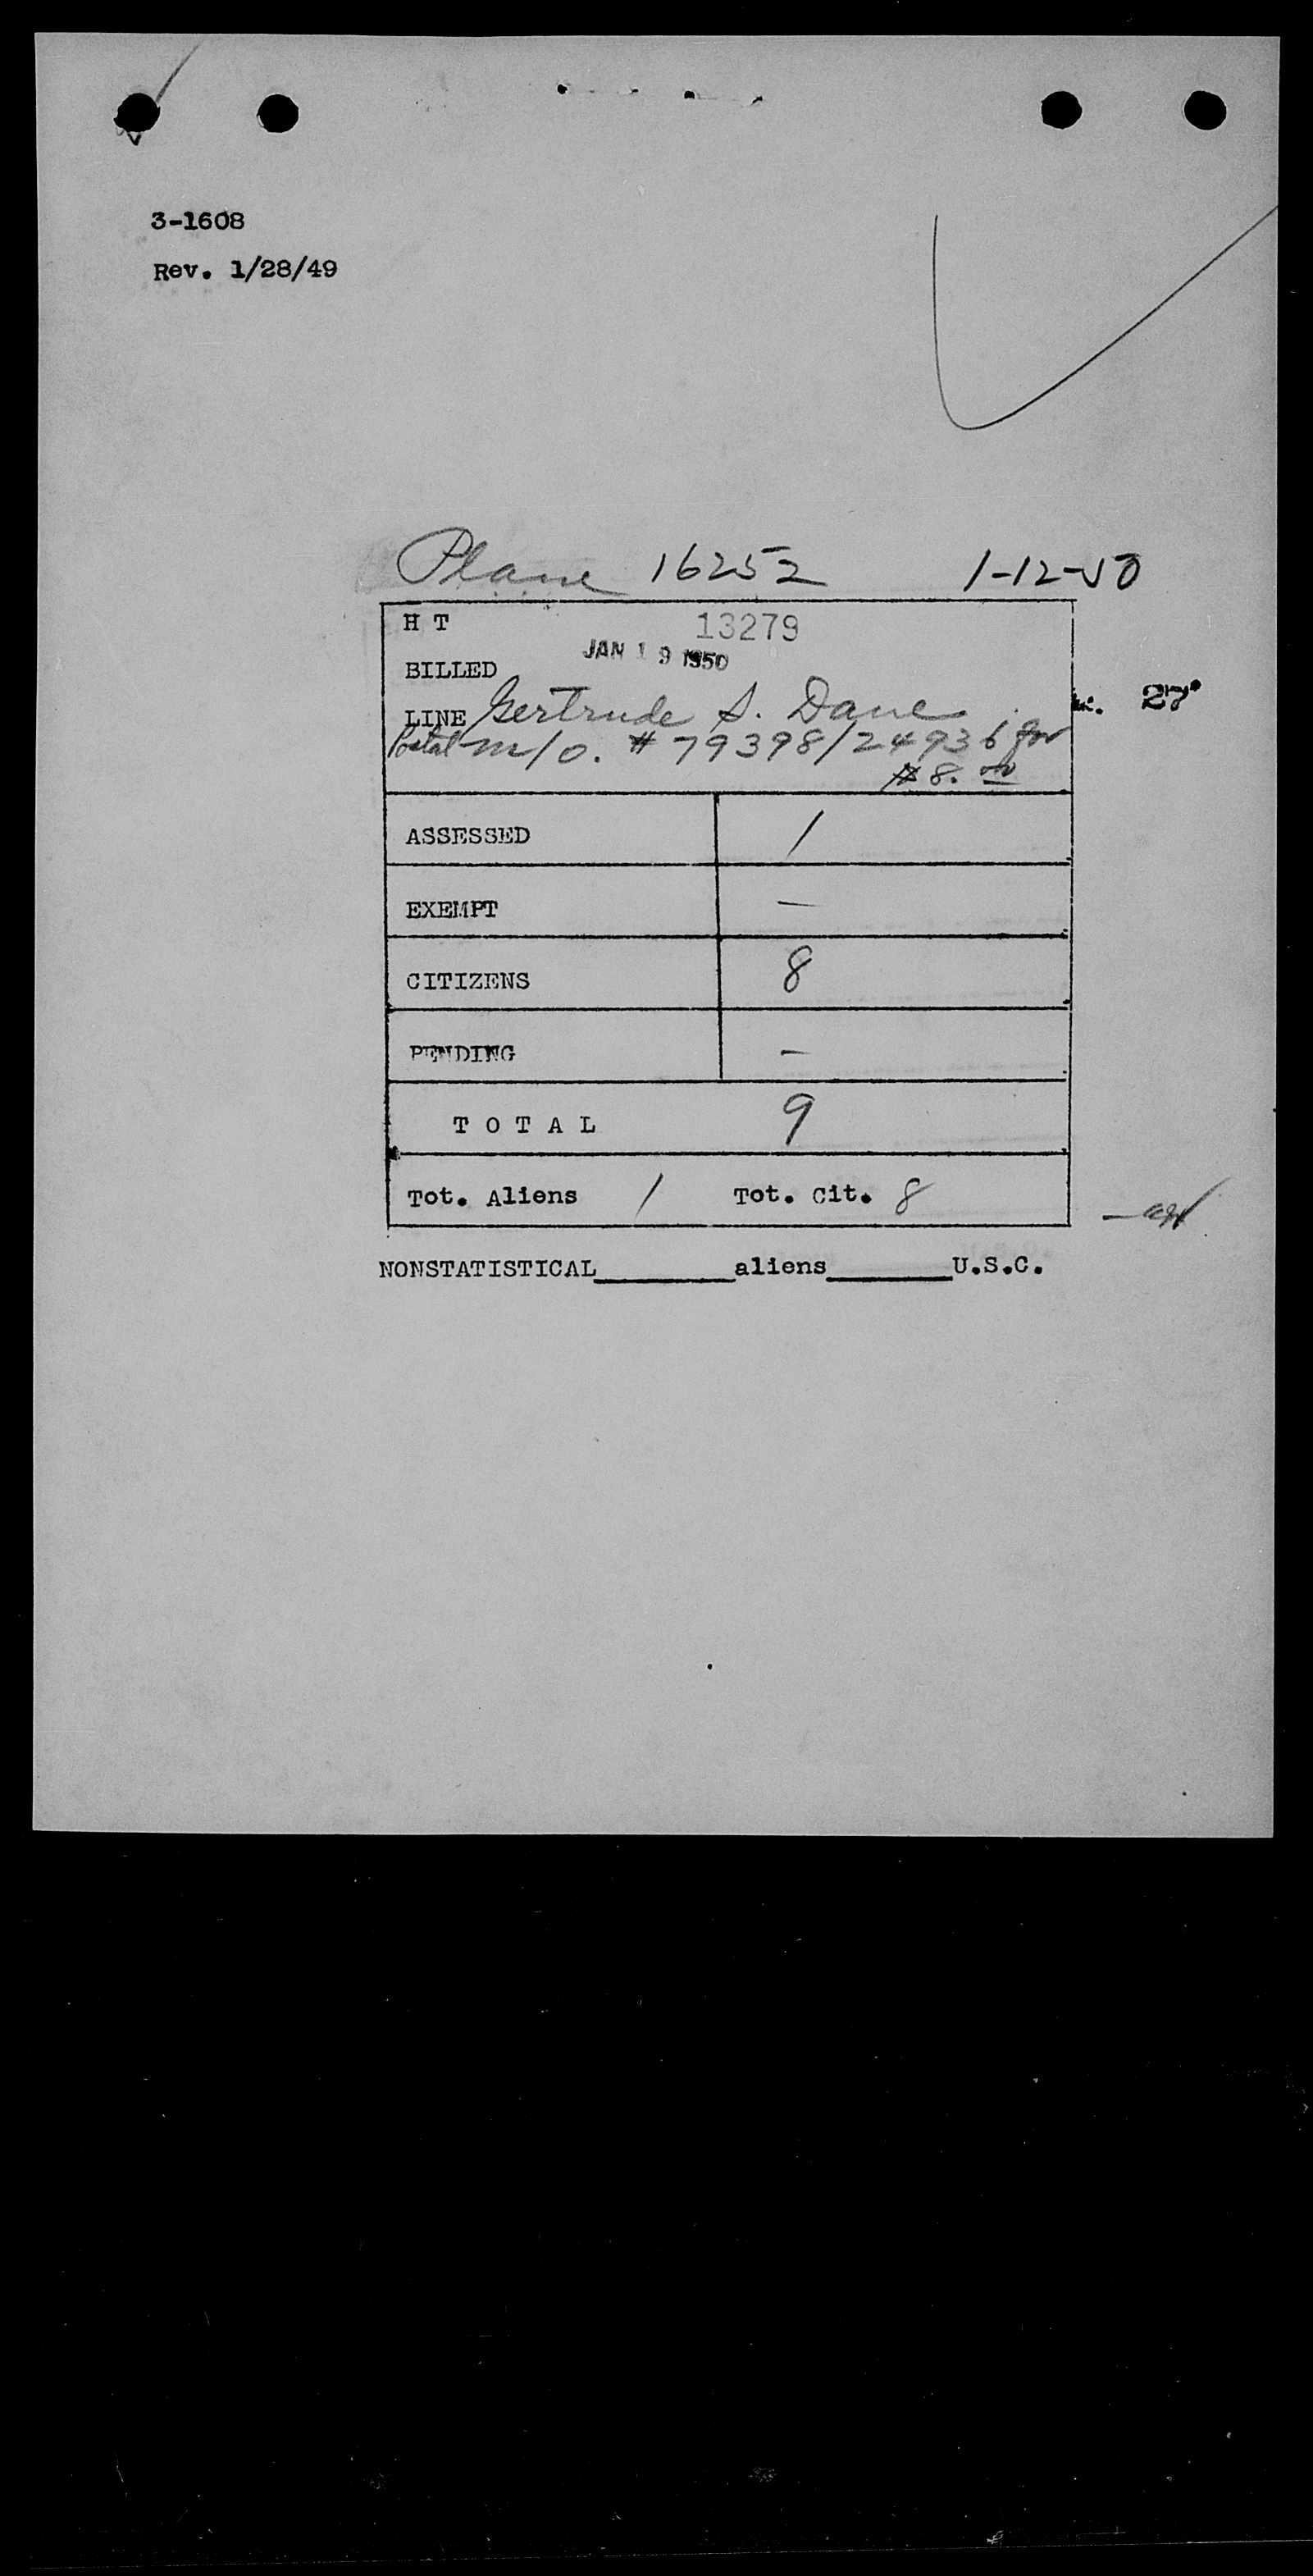 3-1608
Rev. 1/28/49
Plane 16252 1-12-50
H T 13279
BILLED JAN 19 1950
LINE Gertrude S. Dane 27
Postal m/o. # 79398/24936 for
$8.00
ASSESSED 1
EXEMPT —
CITIZENS 8
PENDING —
TOTAL 9
Tot. Aliens 1 Tot. Cit. 8
NONSTATISTICAL________aliens_______U.S.C.